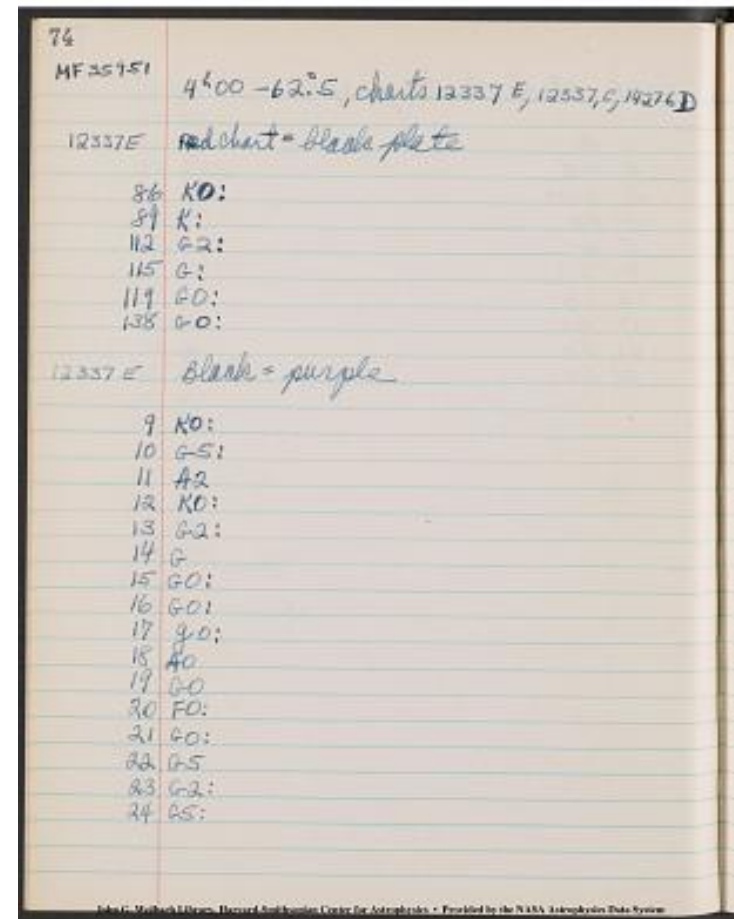 74
MF 35951
4ʰ00 -62°.5, charts 12337 E, 12337, C, 19276 D
12337E Red chart = black plate
86 K0:
89 K:
112 G2:
115 G:
119 G0:
138 G0:
12337 E Blank = purple
9 K0:
10 G5:
11 A2
12 K0:
13 G2:
14 G
15 G0:
16 G0:
17 g0:
18 A0
19 G0
20 F0:
21 G0:
22 G5
23 G2:
24 G5:
John G. Wolbach Library, Harvard-Smithsonian Center for Astrophysics • Provided by the NASA Astrophysics Data System